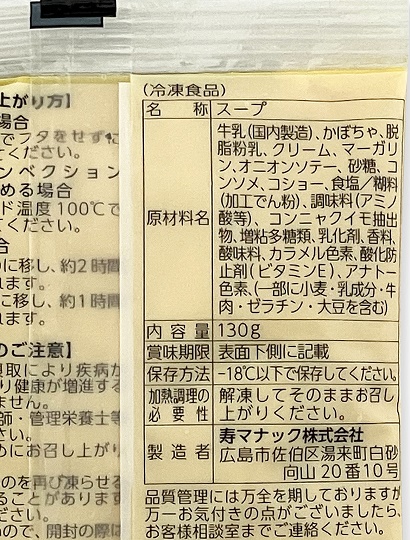 上がり方】
場合
でフタをせずに
てください。
ンベクション
める場合
ド温度100℃で
てください。
合
に移し、約2時間
れます。
に移し、約1時間
ます。
のご注意】
摂取により疾病が
り健康が増進する
ません。
師・管理栄養士等
さい。
めにお召し上がり
のを再び凍らせる
ることがあります
ださい。
ので、開封の際に
(冷凍食品)
名 称 スープ
原材料名
牛乳(国内製造)、かぼちゃ、脱
脂粉乳、クリーム、マーガリ
ン、オニオンソテー、砂糖、コ
ンソメ、コショー、食塩/糊料
(加工でん粉)、調味料(アミノ
酸等)、コンニャクイモ抽出
物、増粘多糖類、乳化剤、香料、
酸味料、カラメル色素、酸化防
止剤(ビタミンE)、アナトー
色素、(一部に小麦・乳成分・牛
肉・ゼラチン・大豆を含む)
内 容 量 130g
賞味期限 表面下側に記載
保存方法 -18℃以下で保存してください。
加熱調理の
必 要 性
解凍してそのままお召し
上がりください。
製 造 者
寿マナック株式会社
広島市佐伯区湯来町白砂
向山20番10号
品質管理には万全を期しておりますが
万一お気付きの点がございましたら、
お客様相談室までご連絡ください。